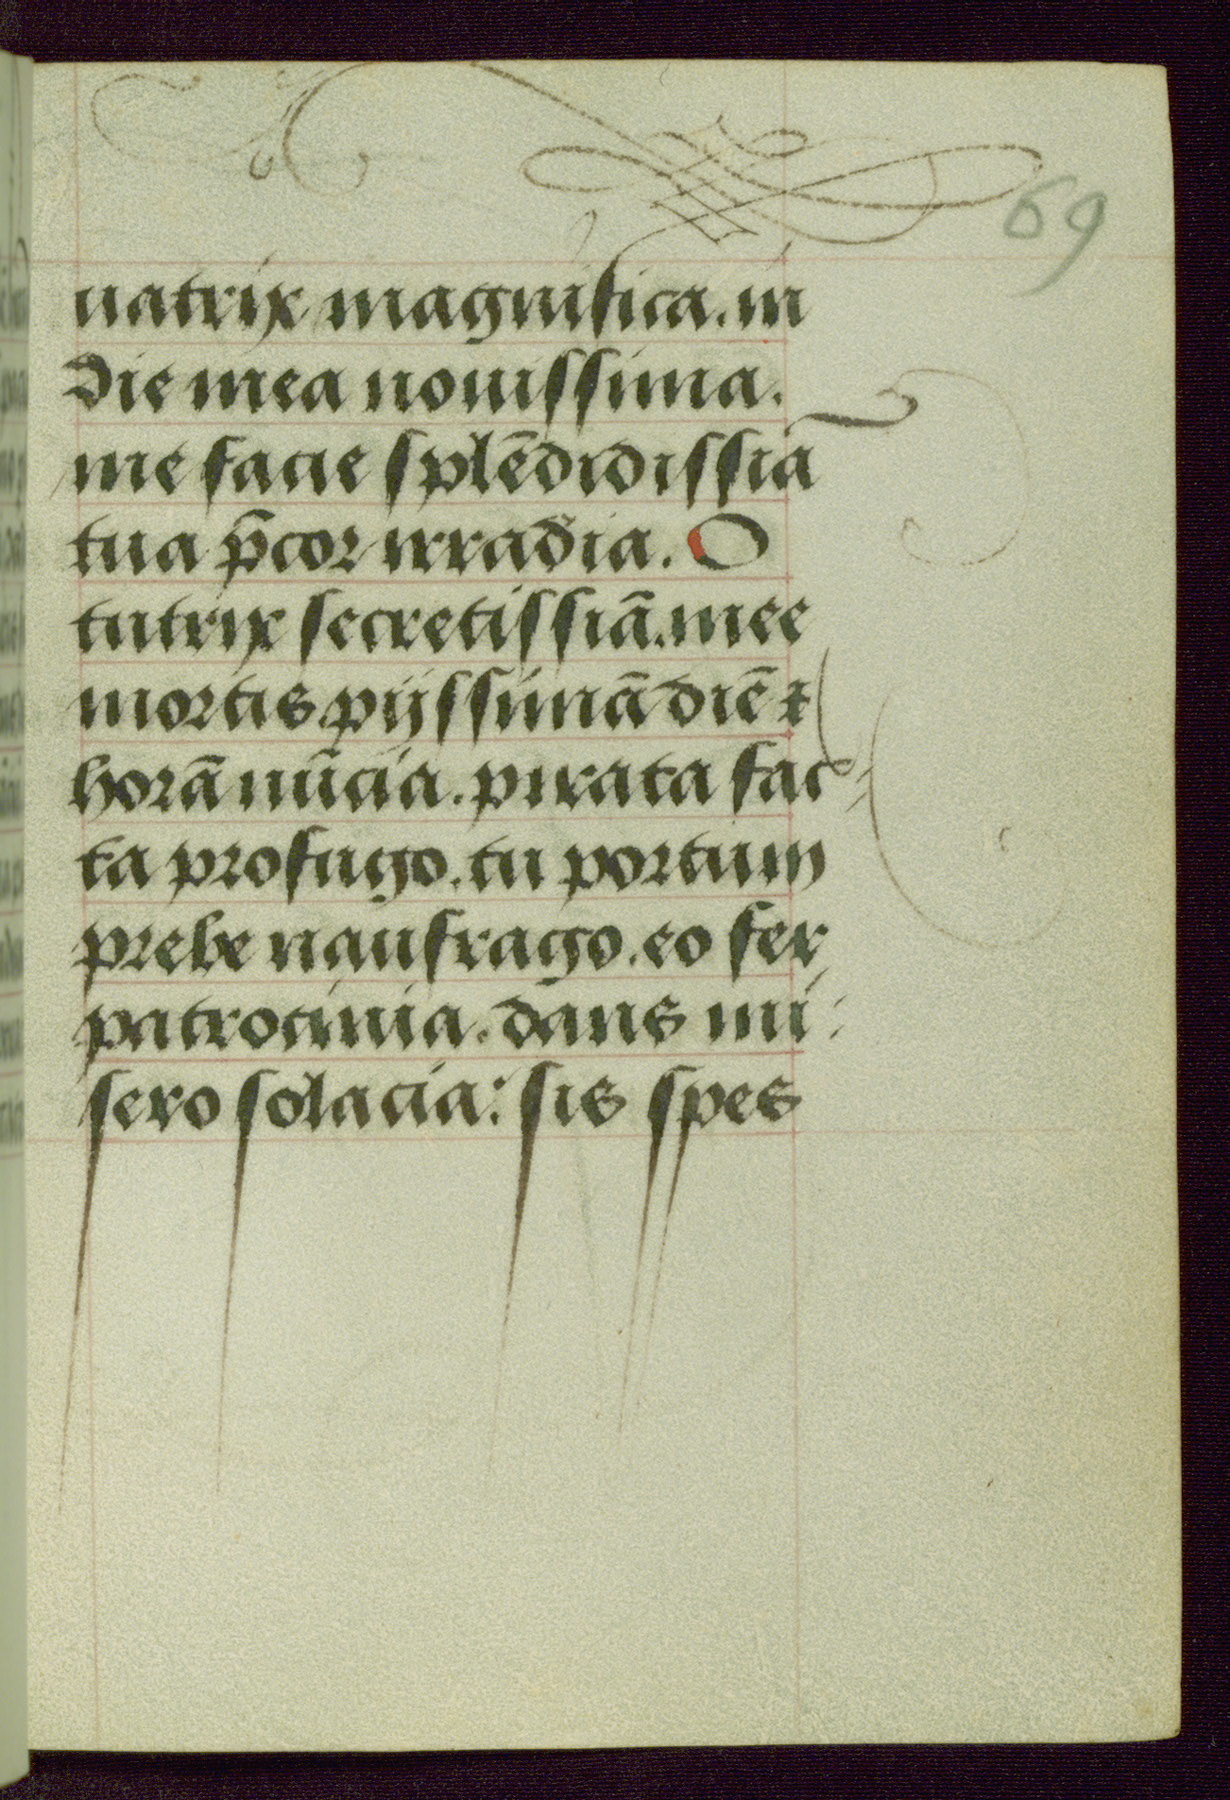 69
natrix magnifica. in
die mea nouissima.
me facie splēdidissiā
tua p̄cor irradia. O
tutrix secretissiā. mee
mortis pijssimā diē ⁊
horā nūcia. pirata fac
ta profugo. tu portum
prebe naufrago. eo fer
patrocinia. dans mi:
sero solacia: sis spes